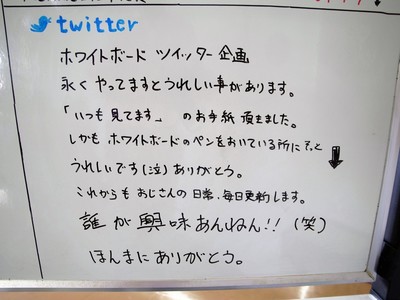 twitter
ホワイトボード ツイッター 企画
永くやってますとうれしい事があります。
「いつも見てます」 のお手紙 頂きました。
しかも ホワイトボードのペンをおいている所にそっと
うれしいです(泣)ありがとう。
これからも おじさんの 日常、毎日更新します。
誰が興味あんねん!!(笑)
ほんまにありがとう。